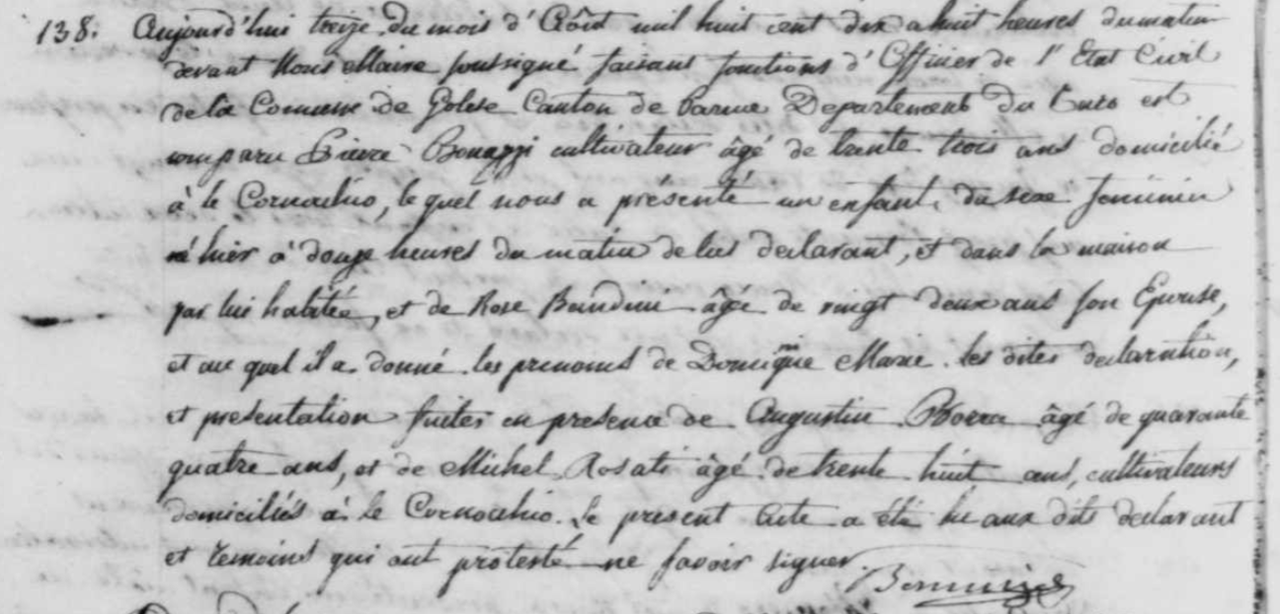 138. Aujourd'hui treize du mois d'Aôut mil huit cent dix a huit heures du matin
devant Nous Maire soussigné faisant fonctions d'Officier de l'Etat Civil
de la Comune de Golese Canton de Parme Departement du Taro est
comparu Pierre Bonazzi cultivateur âgé de trente trois ans domicilié
à le Cornochio, le quel nous a présenté un enfant du sexe feminin
né hier à douze heures du matin de lui declarant, et dans la maison
par lui habitée, et de Rose âgé de vingt deux ans son Epouse,
et au quel il a donné les prenoms de Dominique Marie. les dites declaration,
et presentation faites en presence de Augustin âgé de quarante
quatre ans, et de Michel Rosati âgé de trente huit ans, cultivateurs
domiciliés à le Cornochio. Le present Acte a été lu aux dits declarant
et temoins qui ont protesté ne savoir signer.